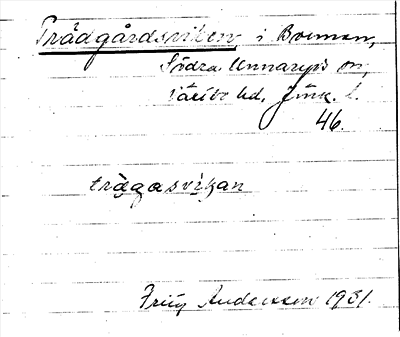 Trädgårdsviken, i Bremen,
Södra Unnaryds sn,
Västbo hd, Jönk. l.
46.
trä̀gasvikan
Frig Andersson 1931.